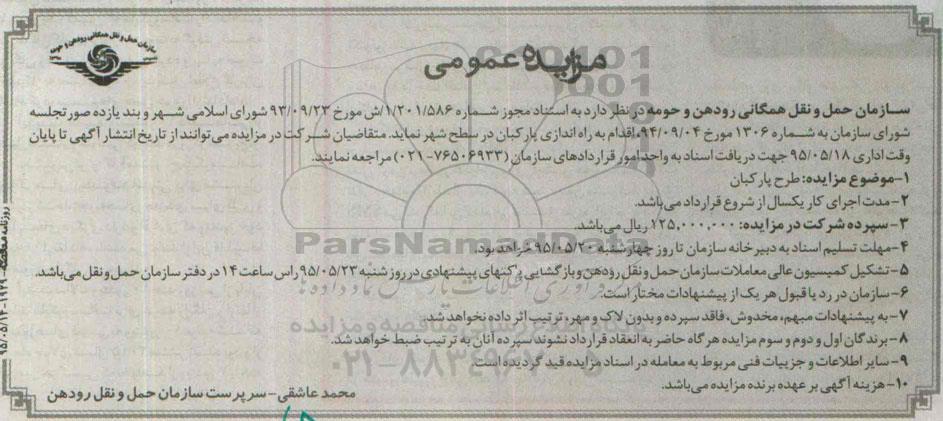 سازمان حمل و نقل همگانی رودهن و حومه
مزایده عمومی
سازمان حمل و نقل همگانی رودهن و حومه در نظر دارد به استناد مجوز شماره ۱/۲۰۱/۵۸۶/ش مورخ ۹۳/۰۹/۲۳ شورای اسلامی شهر و بند یازده صورتجلسه
شورای سازمان به شماره ۱۳۰۶ مورخ ۹۴/۰۹/۰۴، اقدام به راه اندازی پارکبان در سطح شهر نماید. متقاضیان شرکت در مزایده می‌توانند از تاریخ انتشار آگهی تا پایان
وقت اداری ۹۵/۰۵/۱۸ جهت دریافت اسناد به واحد امور قراردادهای سازمان (۷۶۵۰۶۹۳۳-۰۲۱) مراجعه نمایند.
۱-موضوع مزایده: طرح پارکبان
۲-مدت اجرای کار یکسال از شروع قرارداد می‌باشد.
۳- سپرده شرکت در مزایده: ۱۲۵,۰۰۰,۰۰۰ ریال می‌باشد.
۴-مهلت تسلیم اسناد به دبیرخانه سازمان تا روز چهارشنبه ۹۵/۰۵/۲۰ خواهد بود.
۵-تشکیل کمیسیون عالی معاملات سازمان حمل و نقل رودهن و بازگشایی پاکتهای پیشنهادی در روز شنبه ۹۵/۰۵/۲۳ راس ساعت ۱۴ در دفتر سازمان حمل و نقل می‌باشد.
۶-سازمان در رد یا قبول هر یک از پیشنهادات مختار است.
۷-به پیشنهادات مبهم، مخدوش، فاقد سپرده و بدون لاک و مهر، ترتیب اثر داده نخواهد شد.
۸-برندگان اول و دوم و سوم مزایده هرگاه حاضر به انعقاد قرارداد نشوند سپرده آنان به ترتیب ضبط خواهد شد.
۹-سایر اطلاعات و جزییات فنی مربوط به معامله در اسناد مزایده قید گردیده است.
۱۰-هزینه آگهی بر عهده برنده مزایده می‌باشد.
محمد عاشقی-سرپرست سازمان حمل و نقل رودهن
ParsNamadData
پایگاه اطلاع رسانی مناقصه و مزایده
۰۲۱-۸۸۳۴۹۶۷۰-۵